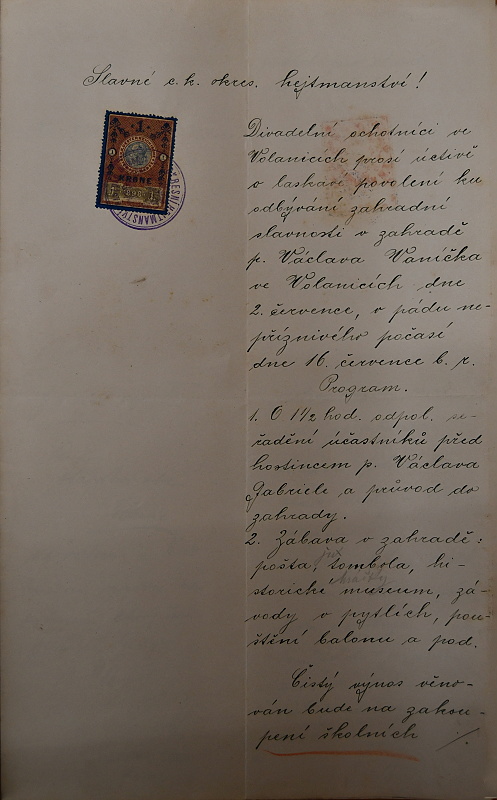 Slavné c. k. okres. hejtmanství!
1
1 1
KRONE
1 898 1
Divadelní ochotníci ve
Volanicích prosí uctivě
o laskavé povolení ku
odbývání zahradní
slavnosti v zahradě
p. Václava Vaníčka
ve Volanicích dne
2. července, v pádu ne-
příznivého počasí
dne 16. července b. r.
Program.
1. O 1 1/2 hod. odpol. se-
řadění účastníků před
hostincem p. Václava
Gabriele a průvod do
zahrady.
2. Zábava v zahradě:
pošta, tombola, hi-
storické museum, zá-
vody v pytlích, pou-
štění balonu a pod.
Čistý výnos věno-
ván bude na zakou-
pení školních ./.